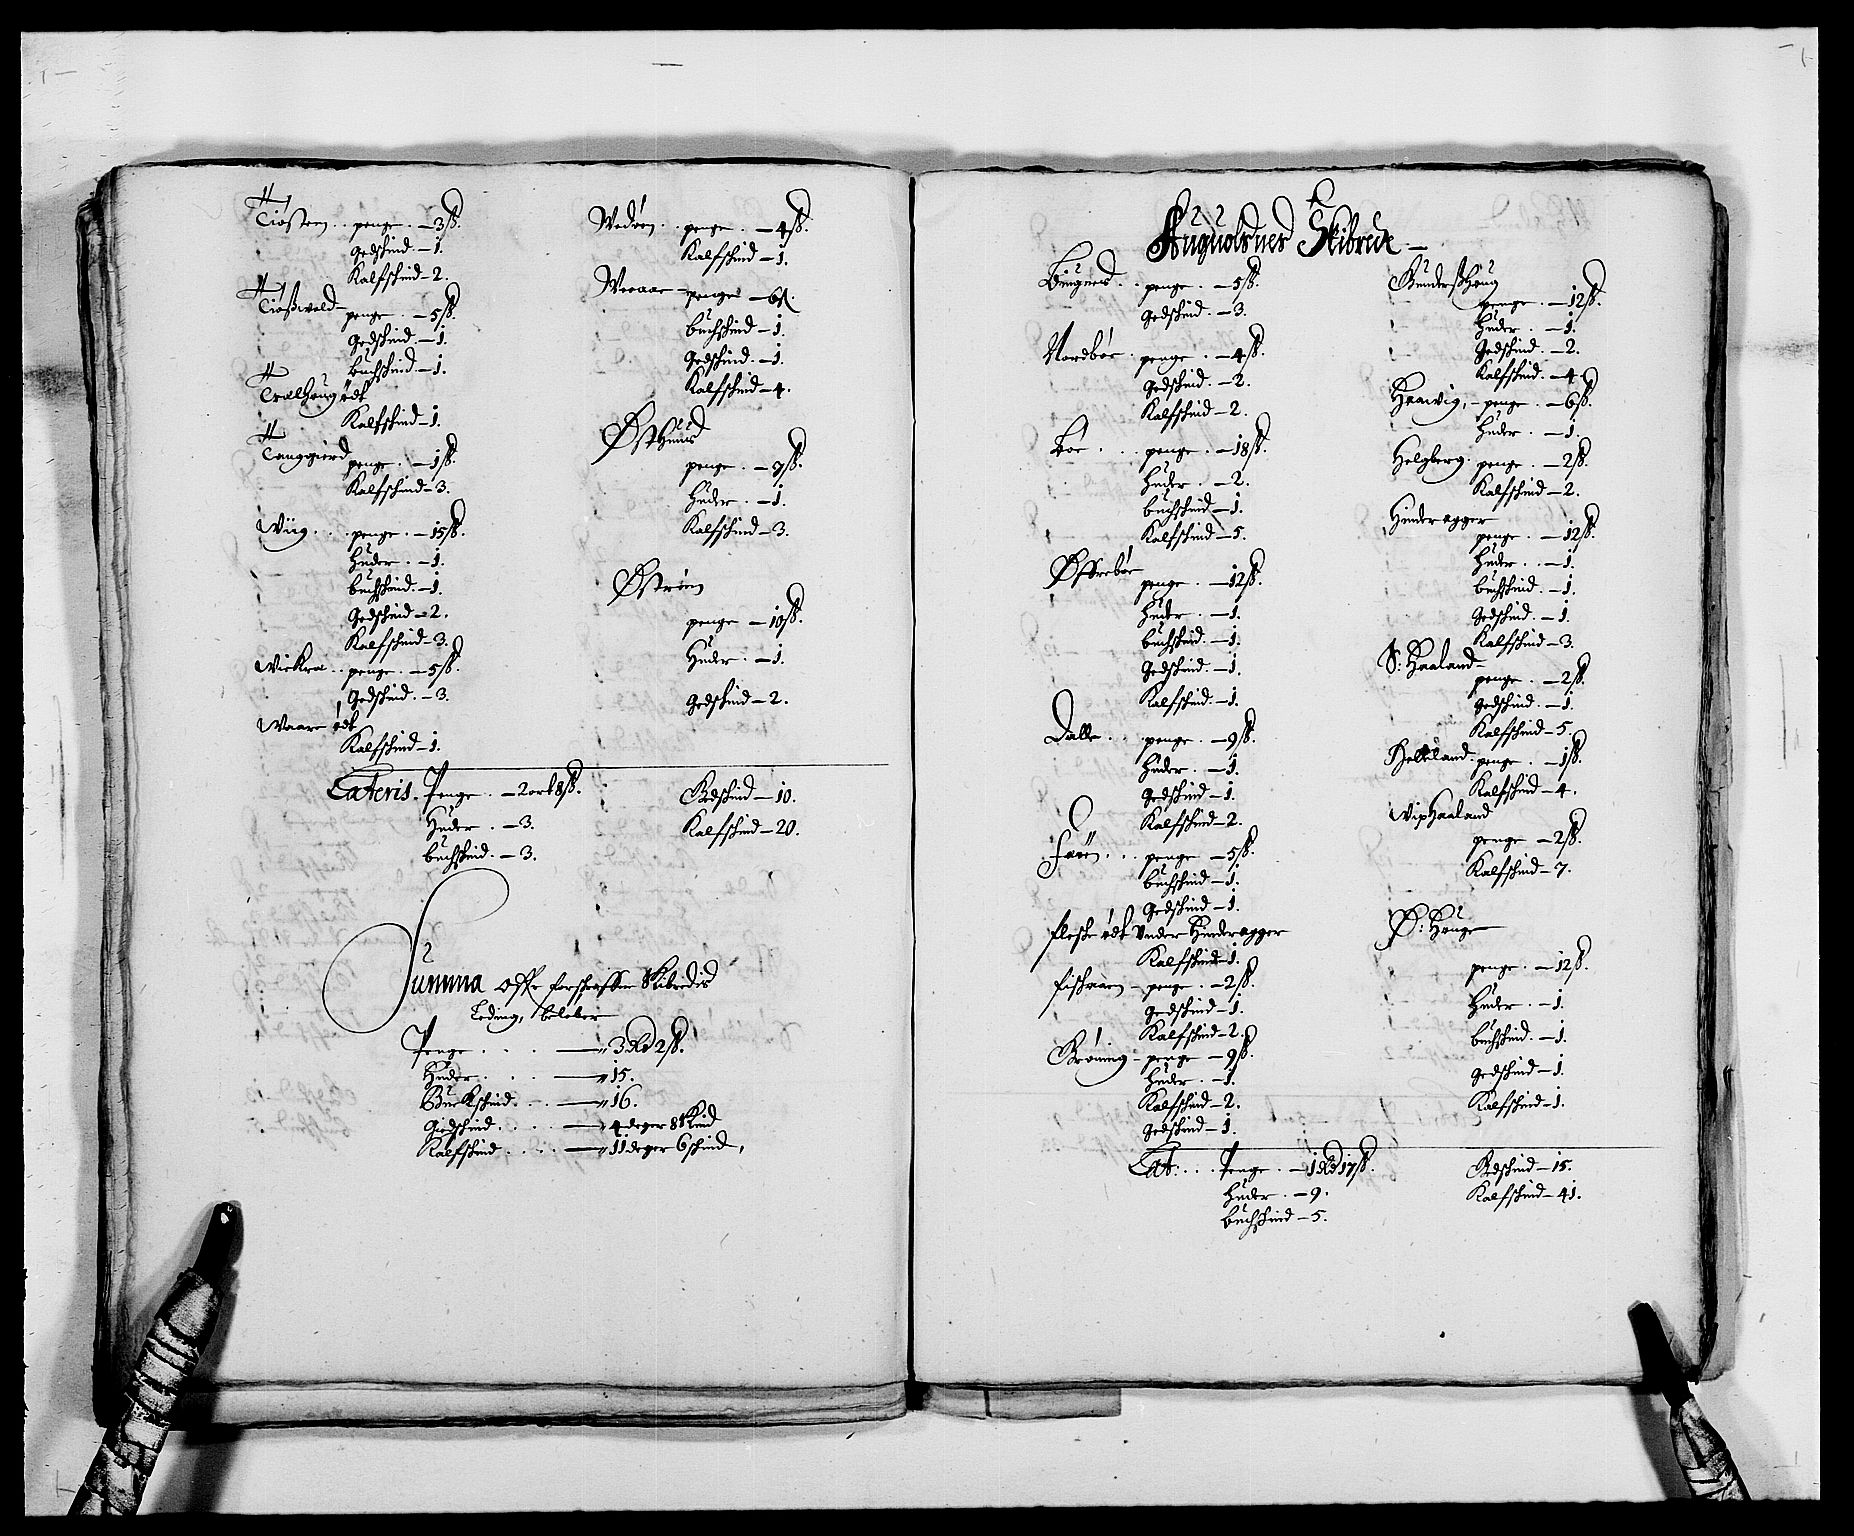 Tiøsten . . penge . – 3 ß.
Gedskind – 1.
Kalfskind – 2.
Tiøstwold – penge . – 5 ß.
Gedskind . – 1.
buchskind – 1.
Tralhaug ødt
Kalfskind – 1.
Tanggierd penge . – 1 ß.
Kalfskind – 3.
Wiig . . . penge . – 15 ß.
Huder . – 1.
buchskind . – 1.
Gedskind – 2.
Kalfskind – 3.
Wickra . . penge . – 5 ß.
Gedskind . – 3.
Waare ødt
Kalfskind – 1.
Wedøen . . penge . – 4 ß.
Kalfskind – 1.
Weraae – penge – 6 ß.
buchskind – 1.
Gedskind . – 1.
Kalfskind – 4.
Østhuus
penge . – 7 ß.
Huder . – 1.
Kalfskind – 3.
Østrim
penge – 10 ß.
Huder . – 1.
Gedskind – 2.
Lateris . Penge . – 2 ort 8 ß.
Huder . – 3.
buchskind . – 3.
Gedskind – 10.
Kalfskind – 20.
Summa offr forskrefften Skibredis
Leding, beløber
Penge . . . . — 3 dlr 2 ß.
Huder . . . . — 15.
Buckskind . . . — 16.
Giedskind . . . . — 4 deger 8 skind
Kalfskind . . . . — 11 deger 6 skind,
Auguolsnes Skibrede –
Buugness . . penge . – 5 ß.
Gedskind . – 3.
Nordbøe . penge . – 4 ß.
Gedskind . – 2.
Kalfskind – 2.
Bøe . . . . penge . – 18 ß.
Huder . – 2.
buchskind – 1.
Kalfskind – 5.
Øffrebøe
penge . – 12 ß.
Huder . – 1.
buchskind . – 1.
Gedskind . – 1.
Kalfskind . – 1.
Dalle . . . penge . – 9 ß.
Huder . – 1.
Gedskind – 1.
Kalfskind – 2.
Føøen . . . penge – 5 ß.
buchskind – 1.
Gedskind – 1.
fleske ødt under Hinderagger
Kalfskind – 1.
fiskaaen – penge . – 2 ß.
Gedskind – 1.
Kalfskind – 2.
Grøning – penge – 9 ß.
Huder . – 1.
Kalfskind – 2.
Gedskind – 1.
Gunders Houg
penge . – 12 ß.
Huder . – 1.
Gedskind . – 2.
Kalfskind . – 4
Haawig, – penge . – 6 ß.
Huder . – 1.
Helgberg . penge . – 2 ß.
Kalfskind – 2.
Hinderagger
penge . – 12 ß.
Huder . . – 1.
buchskind . – 1.
Gedskind . – 1.
Kalfskind – 3.
S: Haaland –
penge . – 2 ß.
Gedskind . – 1.
Kalfskind – 5.
Helleland . penge . – 1 ß.
Kalfskind – 4.
Wix Haaland
penge – 2 ß.
Kalfskind – 7.
Ø: Hauge
penge . – 12 ß.
Huder . – 1.
buchskind . – 1.
Gedskind – 1.
Kalfskind – 1.
Lat: . . . Penge . – 1 dlr 17 ß.
Huder . – 9.
buchskind – 5.
Gedskind – 15.
Kalfskind – 41.